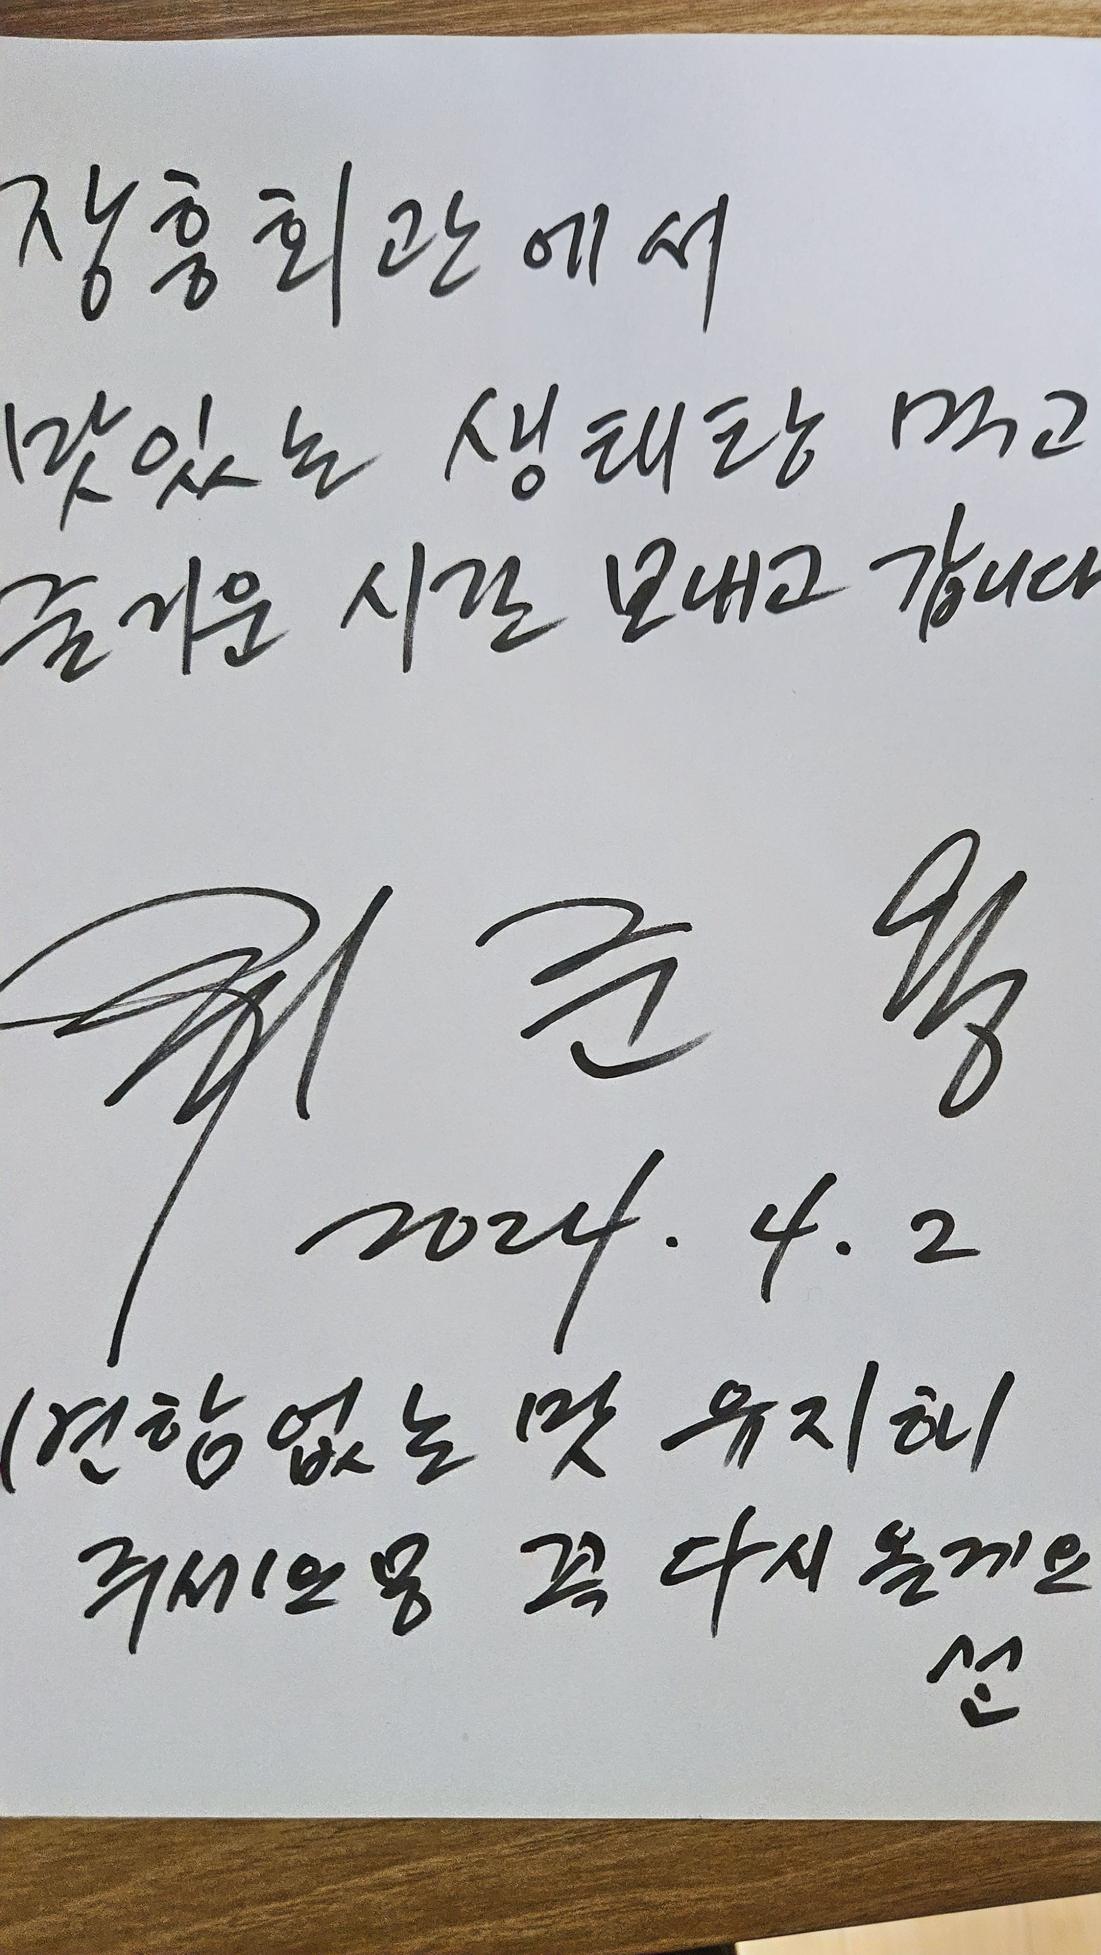 장흥회관에서
맛있는 생태탕 먹고
즐거운 시간 보내고 갑니다
준용
2024. 4. 2
변함없는 맛 유지해
주세요용 꼭 다시 올게요